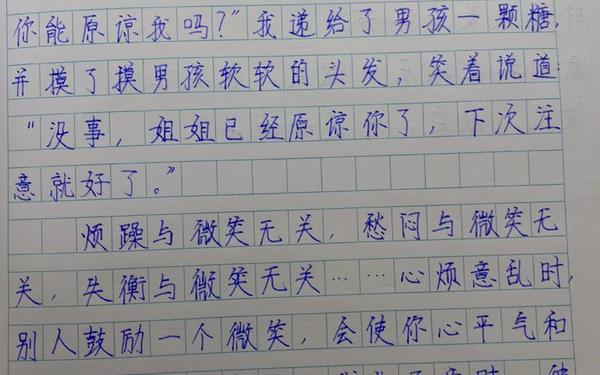 你能原谅我吗?”我递给了男孩一颗糖,
并摸了摸男孩软软的头发,笑着说道:
“没事,姐姐已经原谅你了,下次注
意就好了。”
烦躁与微笑无关,愁闷与微笑无
关,失衡与微笑无关……心烦意乱时,
别人鼓励一个微笑,会使你心平气和